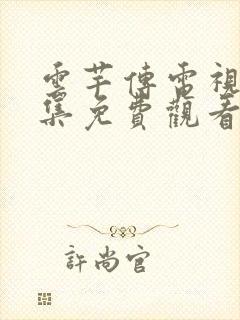 雲芊傳電視
集免費觀看
許尚官